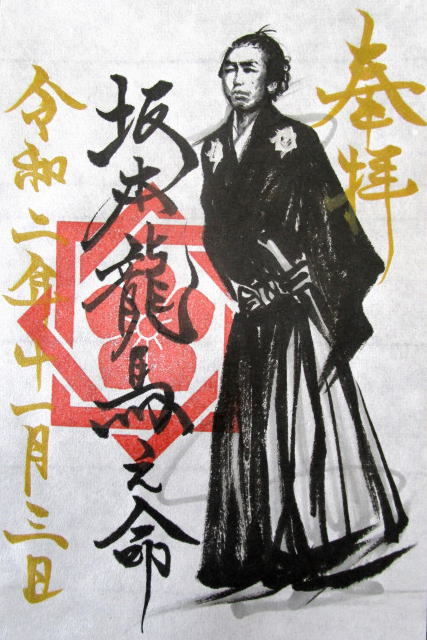 奉拝
坂本龍馬之命
令和二年十一月三日